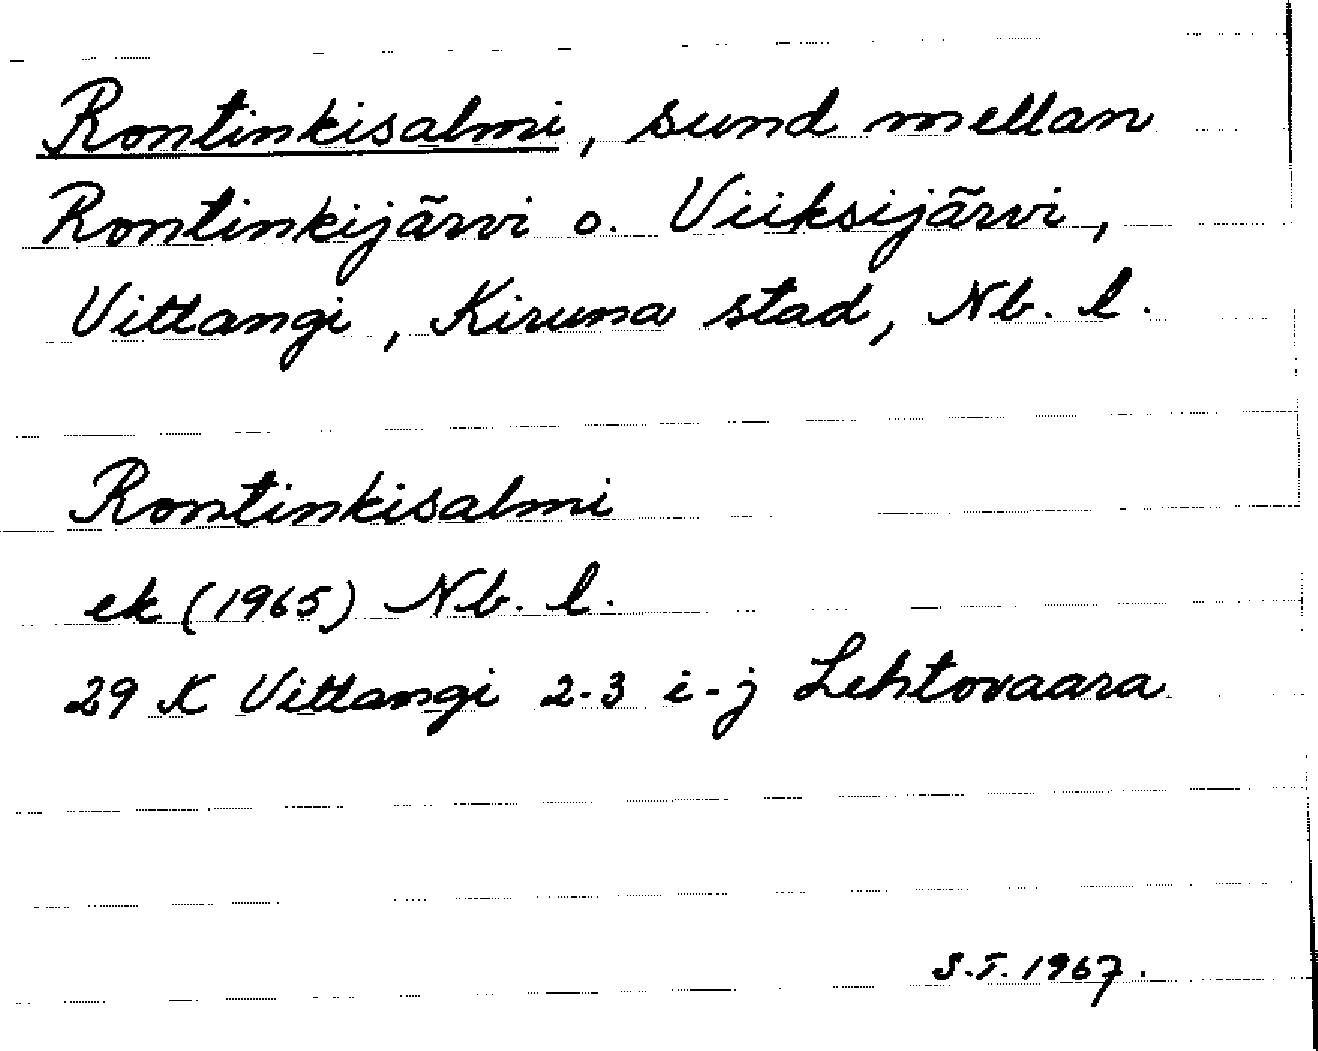 Rontinkisalmi, sund mellan
Rontinkijärvi o. Viiksijärvi,
Vittangi, Kiruna stad, Nb. l.
Rontinkisalmi
ek (1965) Nb. l.
29 K Vittangi 2-3 i-j Lehtovaara
S.T. 1967.